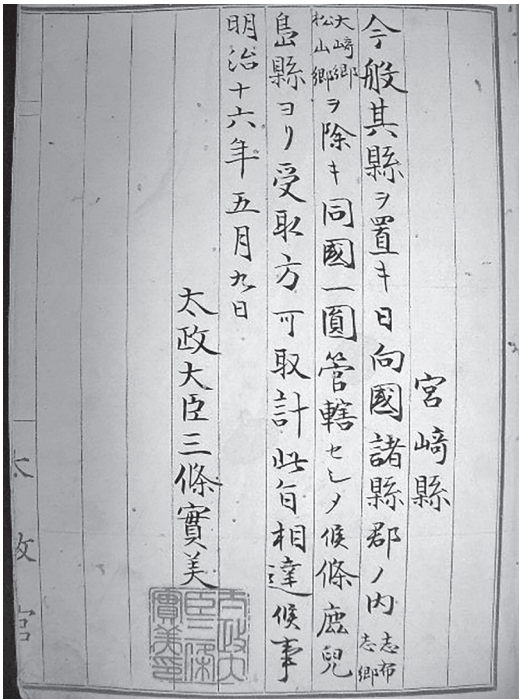 宮﨑縣
今般其縣ヲ置キ日向國諸縣郡ノ内志布志郷
大﨑郷松山郷ヲ除キ同國一圓管轄セシメ候條鹿兒
島縣ヨリ受取方可取計此旨相達候事
明治十六年五月九日
太政大臣三條實美
太政大
臣三條
實美印
太政官